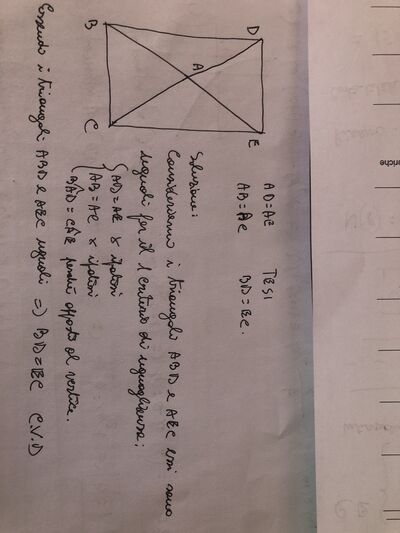 B
D
A
C
E
AD=AE TESI
AB=AC BD=EC.
Soluzione:
Consideriamo i triangoli ABD e AEC essi sono
uguali per il 1 criterio di uguaglianza:
AD=AE x ipotesi
AB=AC x ipotesi
BÂD=CÂE perché opposti al vertice.
Essendo i triangoli ABD e AEC uguali => BD=EC C.V.D